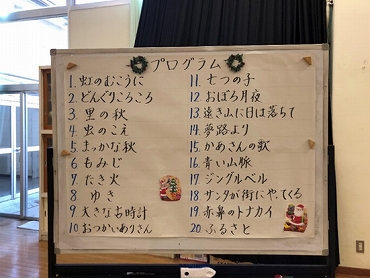 プログラム
1. 虹のむこうに
2. どんぐりころころ
3. 里の秋
4. 虫のこえ
5. まっかな秋
6. もみじ
7. たき火
8. ゆき
9. 大きな古時計
10. おつかいありさん
11. 七つの子
12. おぼろ月夜
13. 遠き山に日は落ちて
14. 夢路より
15. かあさんの歌
16. 青い山脈
17. ジングルベル
18. サンタが街にやってくる
19. 赤鼻のトナカイ
20. ふるさと